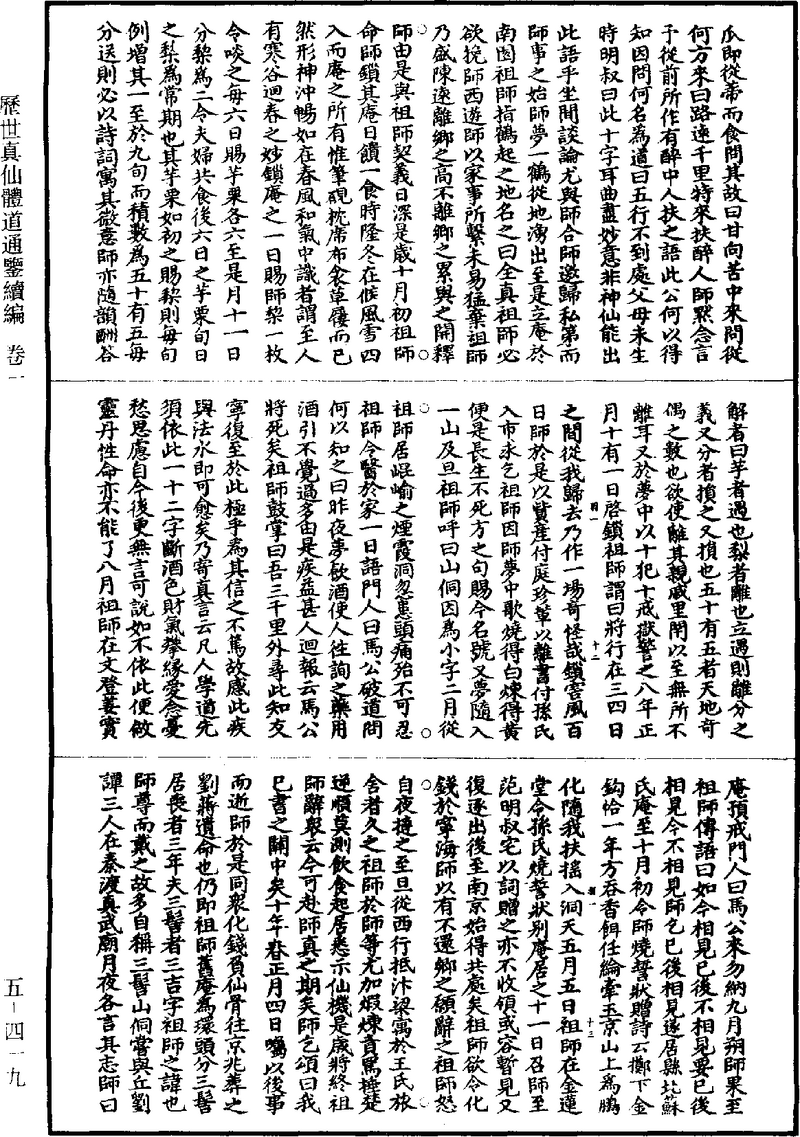 歷世真仙體道通鑒續編　卷一
五－四一九
瓜即從蒂而食問其故曰甘向苦中來問從
何方來曰路遠千里特來扶醉人師默念言
予從前所作有醉中人扶之語此公何以得
知因問何名為道曰五行不到處父母未生
時明叔曰此十字耳曲盡妙意非神仙能出
此語乎坐間談論尤與師合師邀歸私第而
師事之始師夢一鶴從地湧出至是立庵於
南園祖師指鶴起之地名之曰全真祖師必
欲挽師西遊師以家事所繫未易猛棄祖師
乃盛陳遠離鄉之高不離鄉之累與之開釋
師由是與祖師契義日深是歲十月初祖師
命師鎖其庵日饋一食時隆冬在候風雪四
入而庵之所有惟筆硯枕席布衾草屨而已
然形神沖暢如在春風和氣中識者謂至人
有寒谷迴春之妙鎖庵之一日賜師梨一枚
令啖之每六日賜芋栗各六至是月十一日
分梨為二令夫婦共食後六日之芋栗旬日
之梨為常期也其芋栗如初之賜梨則每旬
例增其一至於九旬而積數為五十有五每
分送則必以詩詞寓其微意師亦隨韻酬答
解者曰芋者遇也梨者離也立遇則離分之
義又分者損之又損也五十有五者天地奇
偶之數也欲使離其親戚里閈以至無所不
離耳又於夢中以十犯十戒獄警之八年正
月十有一日啓鎖祖師謂曰將行在三四日
之間從我歸去乃作一場奇怪哉鎖害風百
日師於是以貲產付庭珍輩以離書付孫氏
入市求乞祖師因師夢中歌燒得白煉得黃
便是長生不死方之句賜今名號又夢隨入
一山及旦祖師呼曰山侗因為小字二月從
祖師居崐崳之煙霞洞忽患頭痛殆不可忍
祖師令醫於家一日語門人曰馬公破道問
何以知之曰昨夜夢飲酒使人往詢之藥用
酒引不覺過多由是疾益甚人迴報云馬公
將死矣祖師鼓掌曰吾三千里外尋此知友
寧復至於此極乎為其信之不篤故感此疾
與法水即可愈矣乃寄真言云凡人學道先
須依此一十二字斷酒色財氣攀緣愛念憂
愁思慮自今後更無言可說如不依此便做
靈丹性命亦不能了八月祖師在文登姜實
庵預戒門人曰馬公來勿納九月朔師果至
祖師傳語曰如今相見已後不相見要已後
相見今不相見師乞已後相見遂居縣北蘇
氏庵至十月初令師燒誓狀贈詩云擲下金
鈎恰一年方吞香餌任綸牽玉京山上為鵬
化隨我扶搖入洞天五月五日祖師在金蓮
堂令孫氏燒誓狀別庵居之十一日召師至
范明叔宅以詞贈之亦不收領或容暫見又
復逐出後至南京始得共處矣祖師欲令化
錢於寧海師以有不還鄉之願辭之祖師怒
自夜撻之至旦從西行抵汴梁寓於王氏旅
舍者久之祖師於師等尤加煆煉責罵捶楚
逆順莫測飲食起居悉示仙機是歲將終祖
師辭衆云今可赴師真之期矣師乞頌曰我
已書之關中矣十年春正月四日囑以後事
而逝師於是同衆化錢負仙骨往京兆葬之
劉蔣遺命也仍即祖師舊庵為環頭分三髻
居喪者三年夫三髻者三吉字祖師之諱也
師尊而戴之故多自稱三髻山侗嘗與丘劉
譚三人在秦渡真武廟月夜各言其志師曰